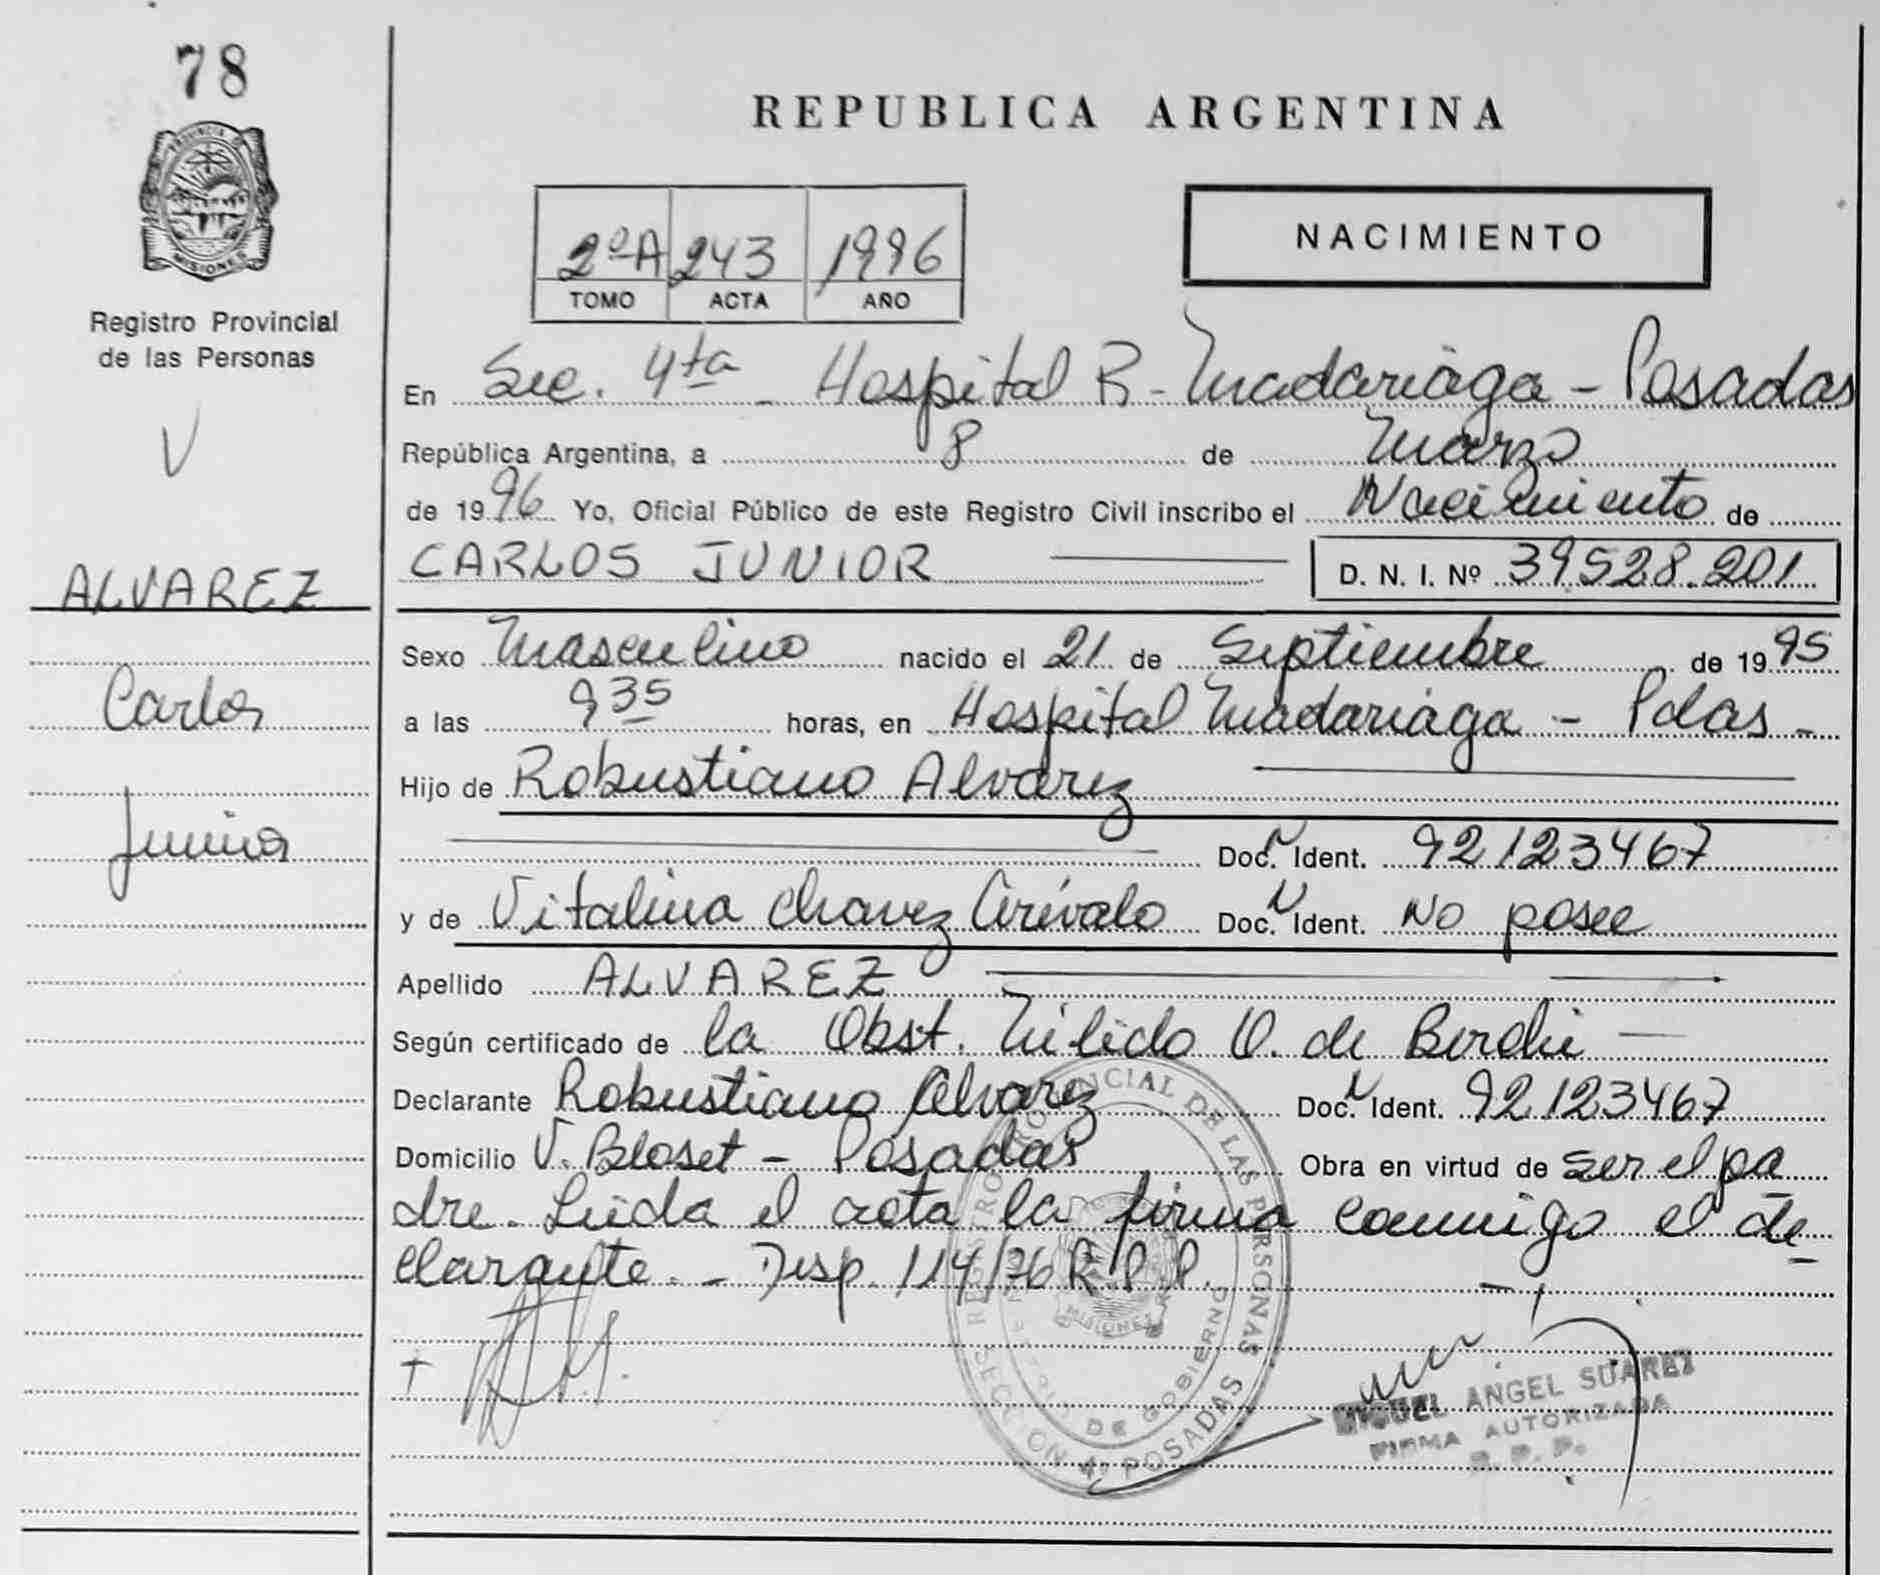 78
PROVINCIA DE
MISIONES
Registro Provincial
de las Personas
V
ALVAREZ
Carlos
Junior
REPUBLICA ARGENTINA
2ºA 243 1996
TOMO ACTA AÑO
NACIMIENTO
En Sec. 4ta - Hospital R. Madariaga - Posadas
República Argentina, a 8 de Marzo
de 1996 Yo, Oficial Público de este Registro Civil inscribo el Nacimiento de
CARLOS JUNIOR D. N. I. Nº 39.528.201
Sexo Masculino nacido el 21 de Septiembre de 1995
a las 9 35 horas, en Hospital Madariaga - Pdas -
Hijo de Robustiano Alvarez
Doc. Ident. 92123467
y de Vitalina Chavez Arévalo Doc. Ident. No posee
Apellido ALVAREZ
Según certificado de la Obst. O. de
Declarante Robustiano Alvarez Doc. Ident. 92.123467
Domicilio V. - Posadas Obra en virtud de ser el pa
dre. Leida el acta la firma conmigo el de-
clarante. - Disp. 114/76 R.P.P.
REGISTRO PROVINCIAL DE LAS PERSONAS
DE GOBIERNO
MISIONES
SECCION 4º POSADAS
MIGUEL ANGEL SUAREZ
FIRMA AUTORIZADA
R. P. P.